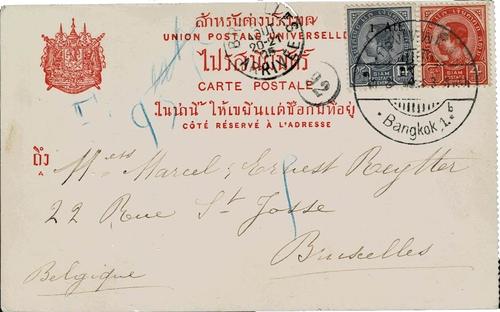 สำหรับต่างประเทศ
UNION POSTALE UNIVERSELLE
ไปรสนียบัตร์
CARTE POSTALE
ในน่านี้ ให้เขียนแต่ชื่อกับที่อยู่
CÔTÉ RÉSERVÉ À L'ADRESSE
Bangkok 1.
b
ถึง
A
Mess Marcel & Ernest Reytter
22 Rue St Josse
Bruxelles
Belgique